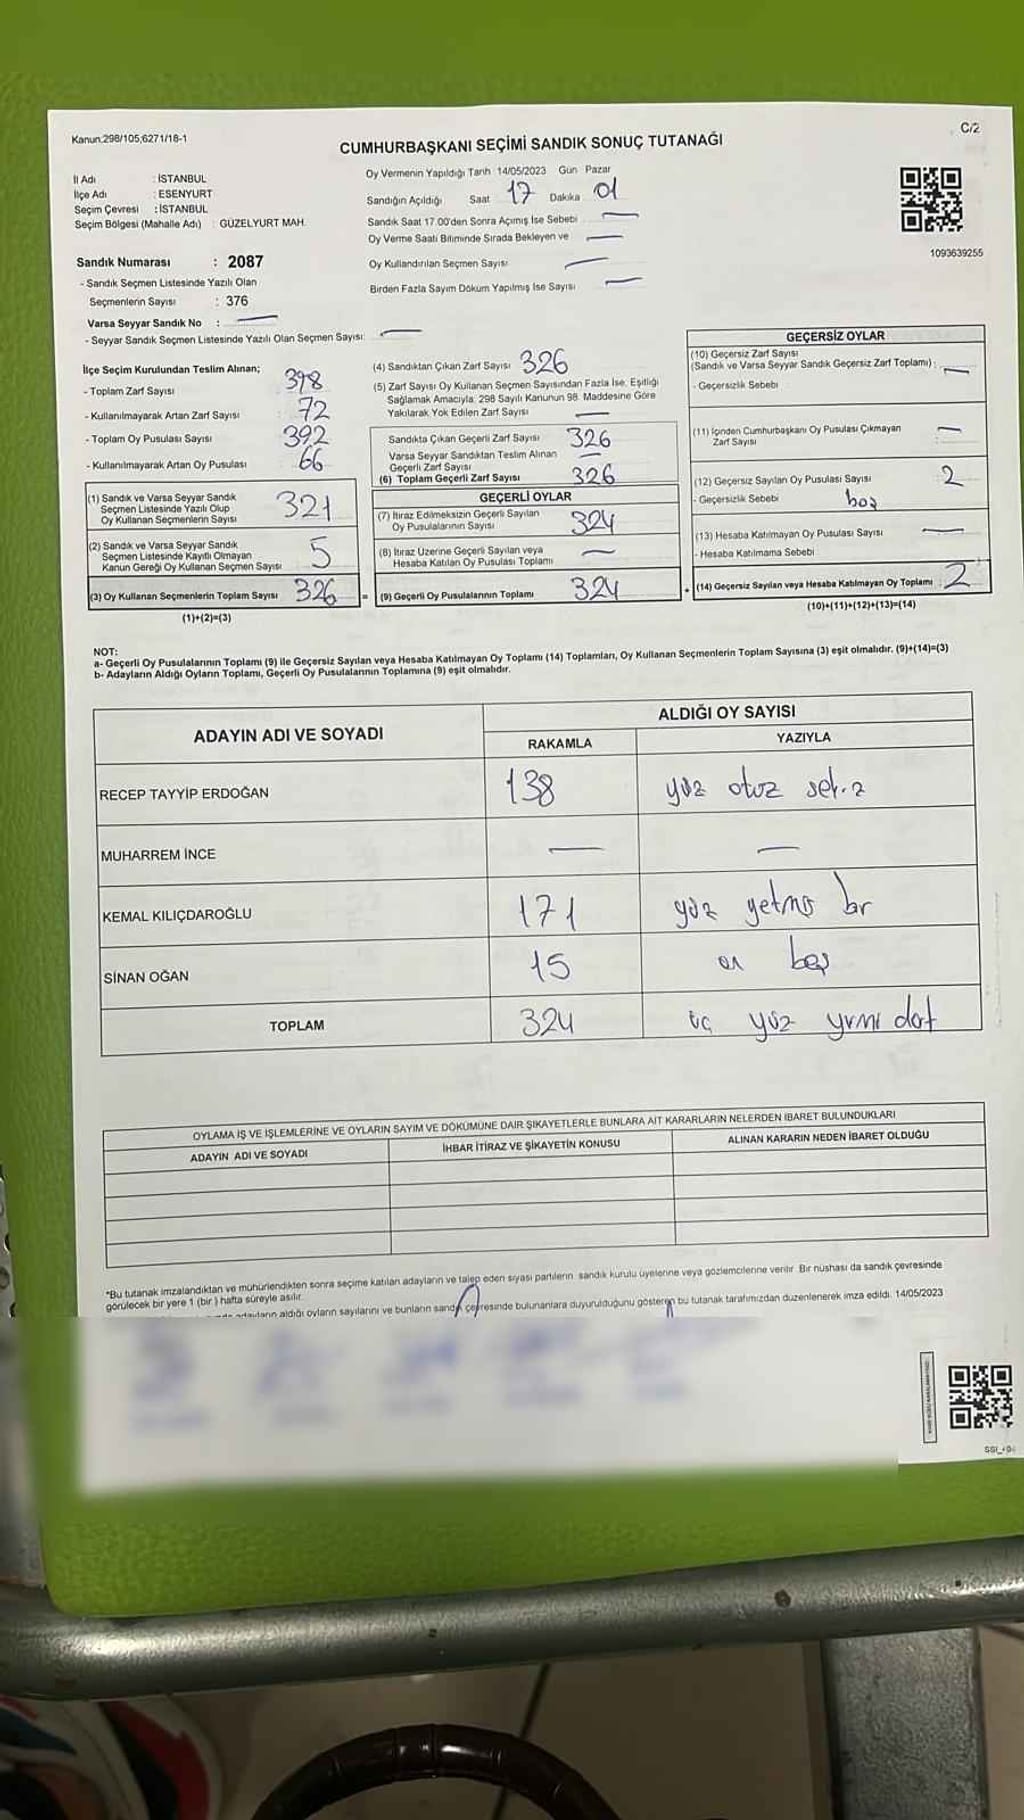 Kanun:298/105;6271/18-1
C/2
CUMHURBAŞKANI SEÇİMİ SANDIK SONUÇ TUTANAĞI
İl Adı : İSTANBUL
İlçe Adı : ESENYURT
Seçim Çevresi : İSTANBUL
Seçim Bölgesi (Mahalle Adı) : GÜZELYURT MAH.
Sandık Numarası : 2087
- Sandık Seçmen Listesinde Yazılı Olan
Seçmenlerin Sayısı : 376
Varsa Seyyar Sandık No : —
- Seyyar Sandık Seçmen Listesinde Yazılı Olan Seçmen Sayısı: —
Oy Vermenin Yapıldığı Tarih 14/05/2023 Gün Pazar
Sandığın Açıldığı Saat 17 Dakika 01
Sandık Saat 17.00'den Sonra Açımış İse Sebebi —
Oy Verme Saati Bitiminde Sırada Bekleyen ve —
Oy Kullandırılan Seçmen Sayısı —
Birden Fazla Sayım Döküm Yapılmış İse Sayısı —
1093639255
İlçe Seçim Kurulundan Teslim Alınan;
- Toplam Zarf Sayısı 398
- Kullanılmayarak Artan Zarf Sayısı 72
- Toplam Oy Pusulası Sayısı 392
- Kullanılmayarak Artan Oy Pusulası 66
(1) Sandık ve Varsa Seyyar Sandık
Seçmen Listesinde Yazılı Olup
Oy Kullanan Seçmenlerin Sayısı 321
(2) Sandık ve Varsa Seyyar Sandık
Seçmen Listesinde Kayıtlı Olmayan
Kanun Gereği Oy Kullanan Seçmen Sayısı 5
(3) Oy Kullanan Seçmenlerin Toplam Sayısı 326
(1)+(2)=(3)
=
(4) Sandıktan Çıkan Zarf Sayısı 326
(5) Zarf Sayısı Oy Kullanan Seçmen Sayısından Fazla İse, Eşitliği
Sağlamak Amacıyla, 298 Sayılı Kanunun 98. Maddesine Göre
Yakılarak Yok Edilen Zarf Sayısı —
Sandıkta Çıkan Geçerli Zarf Sayısı 326
Varsa Seyyar Sandıktan Teslim Alınan
Geçerli Zarf Sayısı —
(6) Toplam Geçerli Zarf Sayısı 326
GEÇERLİ OYLAR
(7) İtiraz Edilmeksizin Geçerli Sayılan
Oy Pusulalarının Sayısı 324
(8) İtiraz Üzerine Geçerli Sayılan veya
Hesaba Katılan Oy Pusulası Toplamı —
(9) Geçerli Oy Pusulalarının Toplamı 324
+
GEÇERSİZ OYLAR
(10) Geçersiz Zarf Sayısı
(Sandık ve Varsa Seyyar Sandık Geçersiz Zarf Toplamı) : —
- Geçersizlik Sebebi
(11) İçinden Cumhurbaşkanı Oy Pusulası Çıkmayan
Zarf Sayısı —
(12) Geçersiz Sayılan Oy Pusulası Sayısı 2
- Geçersizlik Sebebi boş
(13) Hesaba Katılmayan Oy Pusulası Sayısı —
- Hesaba Katılmama Sebebi
(14) Geçersiz Sayılan veya Hesaba Katılmayan Oy Toplamı 2
(10)+(11)+(12)+(13)=(14)
NOT:
a- Geçerli Oy Pusulalarının Toplamı (9) ile Geçersiz Sayılan veya Hesaba Katılmayan Oy Toplamı (14) Toplamları, Oy Kullanan Seçmenlerin Toplam Sayısına (3) eşit olmalıdır. (9)+(14)=(3)
b- Adayların Aldığı Oyların Toplamı, Geçerli Oy Pusulalarının Toplamına (9) eşit olmalıdır.
ADAYIN ADI VE SOYADI
ALDIĞI OY SAYISI
RAKAMLA YAZIYLA
RECEP TAYYİP ERDOĞAN 138 yüz otuz sekiz
MUHARREM İNCE — —
KEMAL KILIÇDAROĞLU 171 yüz yetmiş bir
SİNAN OĞAN 15 on beş
TOPLAM 324 üç yüz yirmi dört
OYLAMA İŞ VE İŞLEMLERİNE VE OYLARIN SAYIM VE DÖKÜMÜNE DAİR ŞİKAYETLERLE BUNLARA AİT KARARLARIN NELERDEN İBARET BULUNDUKLARI
ADAYIN ADI VE SOYADI
İHBAR İTİRAZ VE ŞİKAYETİN KONUSU
ALINAN KARARIN NEDEN İBARET OLDUĞU
*Bu tutanak imzalandıktan ve mühürlendikten sonra seçime katılan adayların ve talep eden siyasi partilerin sandık kurulu üyelerine veya gözlemcilerine verilir. Bir nüshası da sandık çevresinde
görülecek bir yere 1 (bir ) hafta süreyle asılır.
adayların aldığı oyların sayılarını ve bunların sandık çevresinde bulunanlara duyurulduğunu gösteren bu tutanak tarafımızdan düzenlenerek imza edildi. 14/05/2023